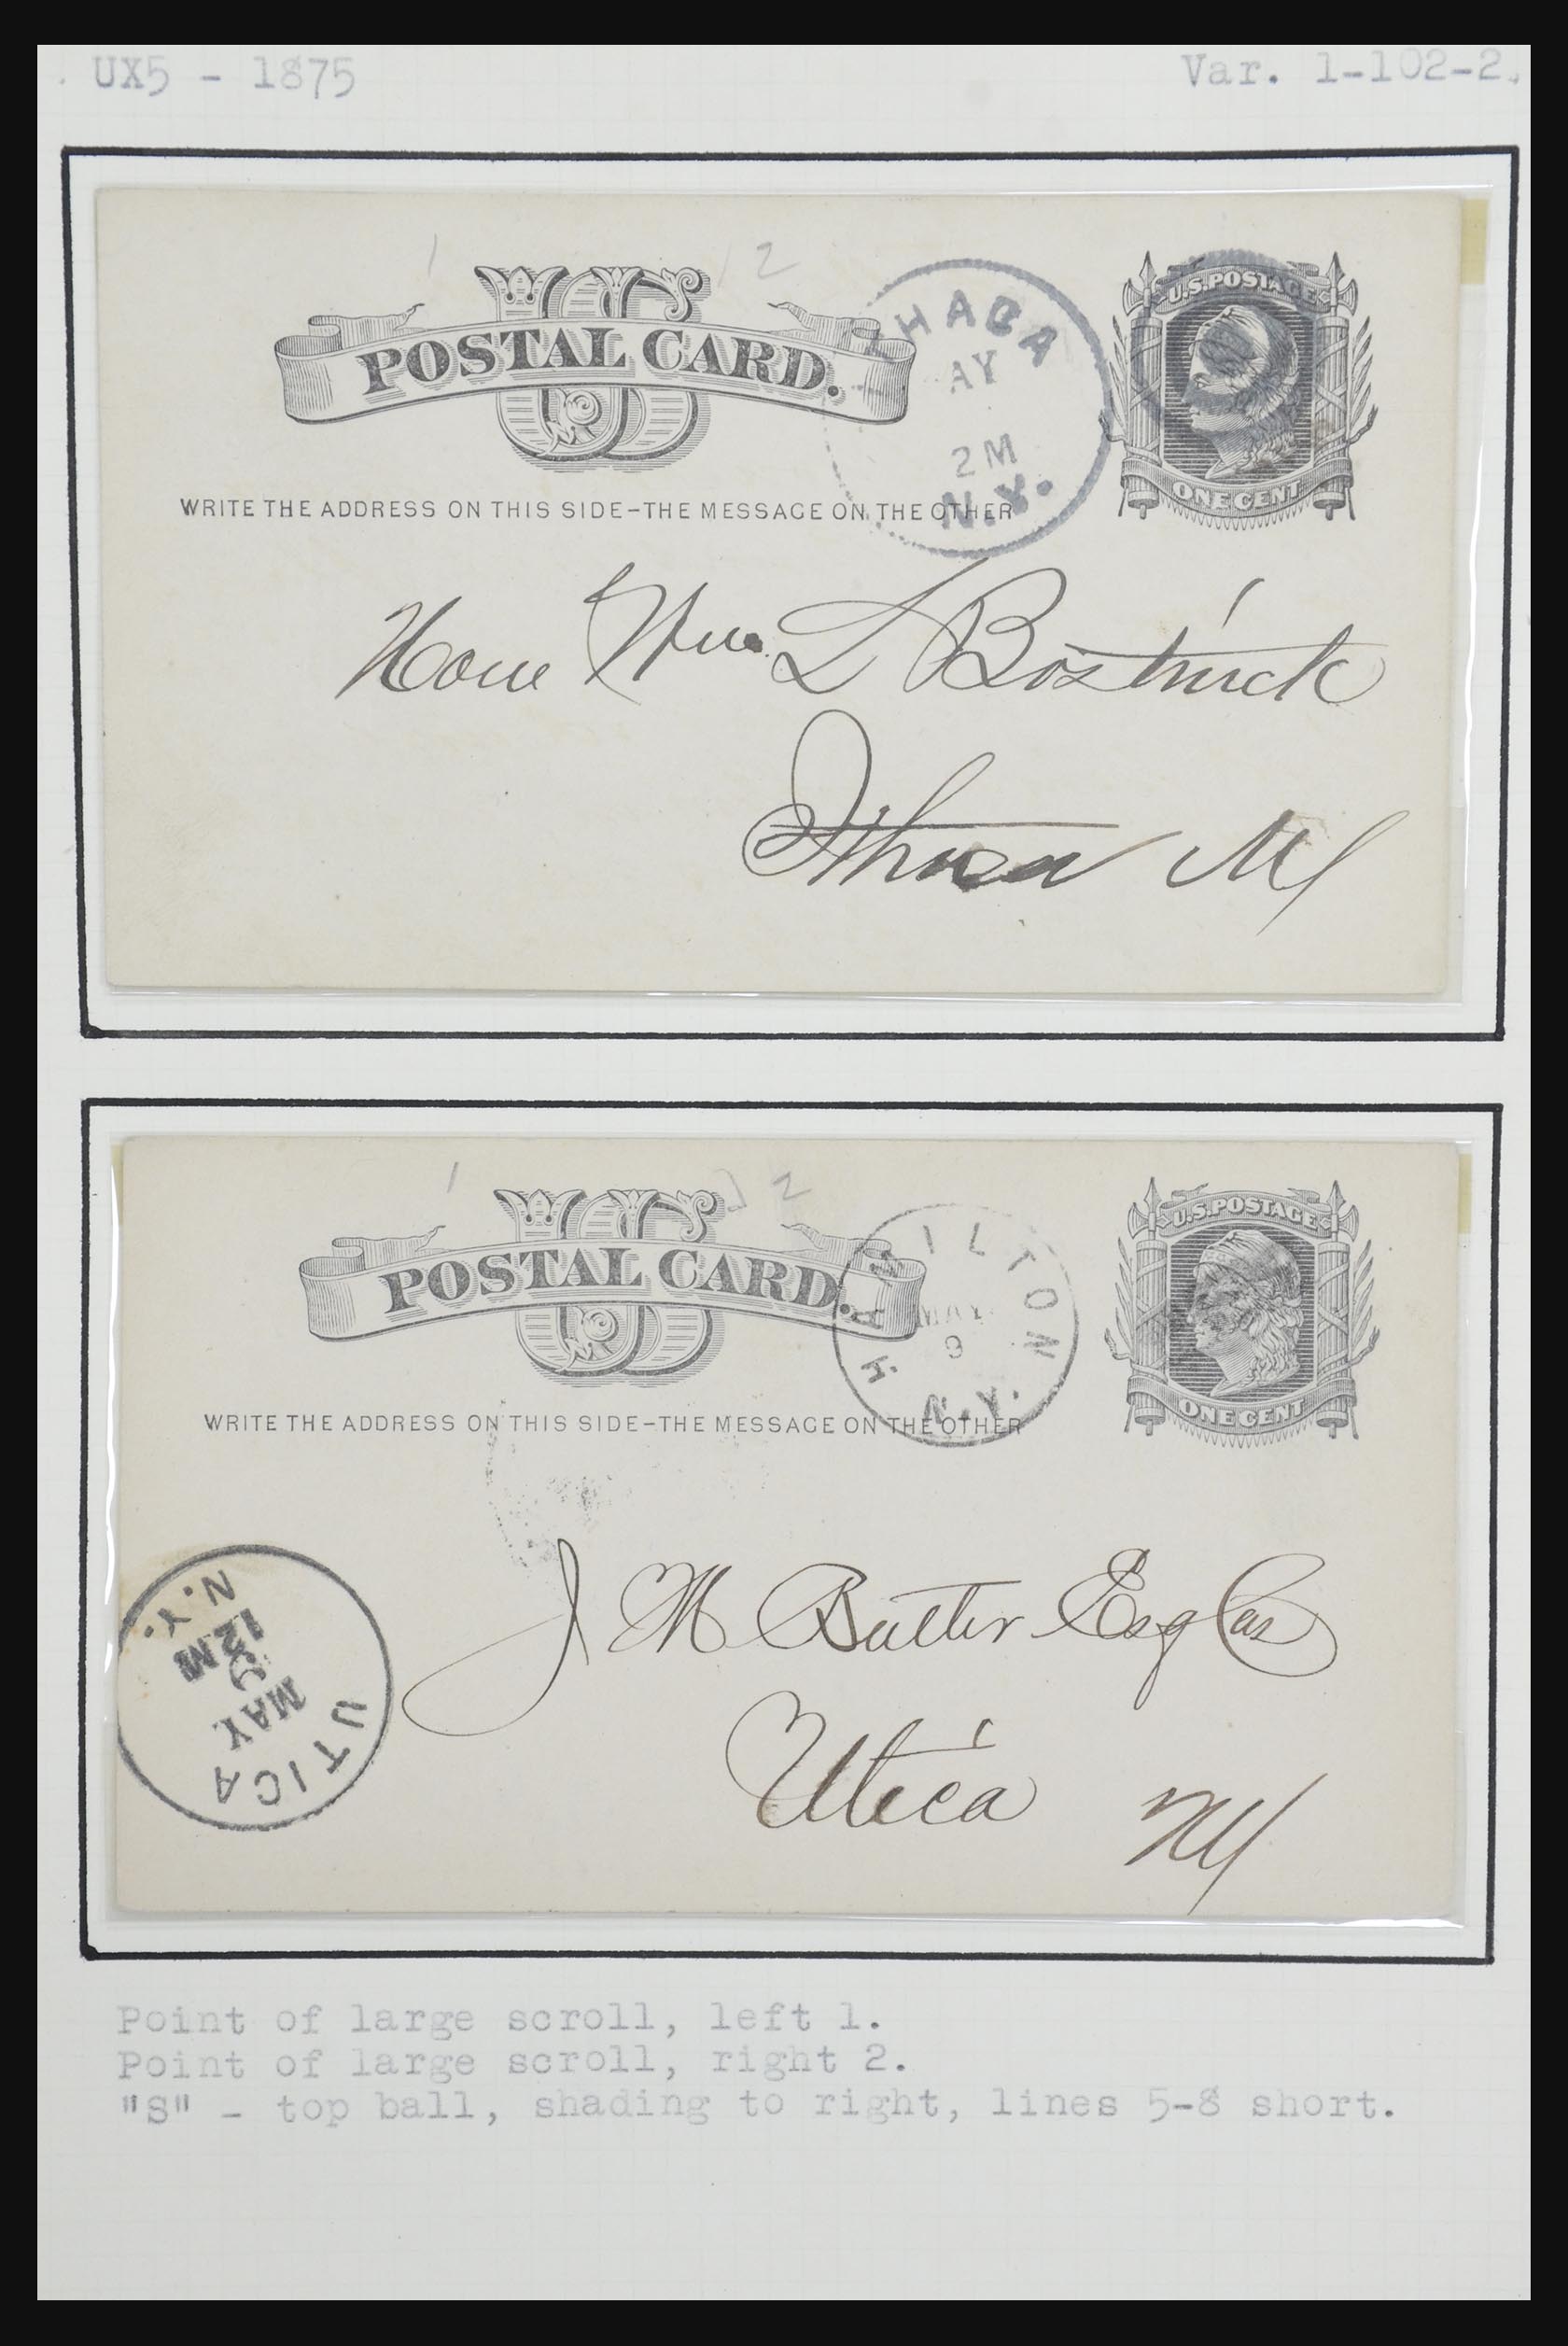 UX5 - 1875
Var. 1-102-2.
1 12
US
POSTAL CARD.
HACA
AY
2 M
N.Y.
U.S. POSTAGE
ONE CENT
WRITE THE ADDRESS ON THIS SIDE-THE MESSAGE ON THE OTHER
Hon Wm. L Bostwick
Ithaca NY
1 2
US
POSTAL CARD.
HAMILTON
MAY
9
N.Y.
U.S. POSTAGE
ONE CENT
WRITE THE ADDRESS ON THIS SIDE-THE MESSAGE ON THE OTHER
UTICA
MAY
9
12M
N.Y.
J M Butler Esq Cas
Utica NY
Point of large scroll, left 1.
Point of large scroll, right 2.
"S" - top ball, shading to right, lines 5-8 short.